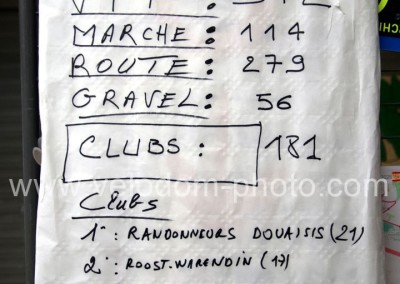 MARCHE : 114
ROUTE : 279
GRAVEL : 56
CLUBS : 181
www.velodom-photo.com
Clubs
1° : RANDONNEURS DOUAISIS (21)
2° : ROOST.WARENDIN (17)